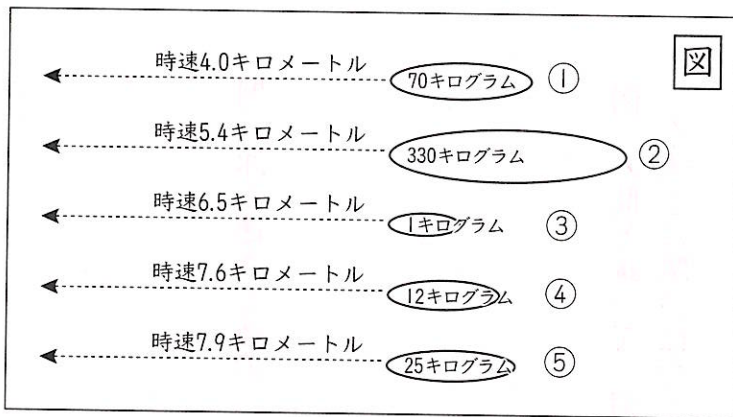 図
時速4.0キロメートル
70キログラム ①
時速5.4キロメートル
330キログラム ②
時速6.5キロメートル
1キログラム ③
時速7.6キロメートル
12キログラム ④
時速7.9キロメートル
25キログラム ⑤